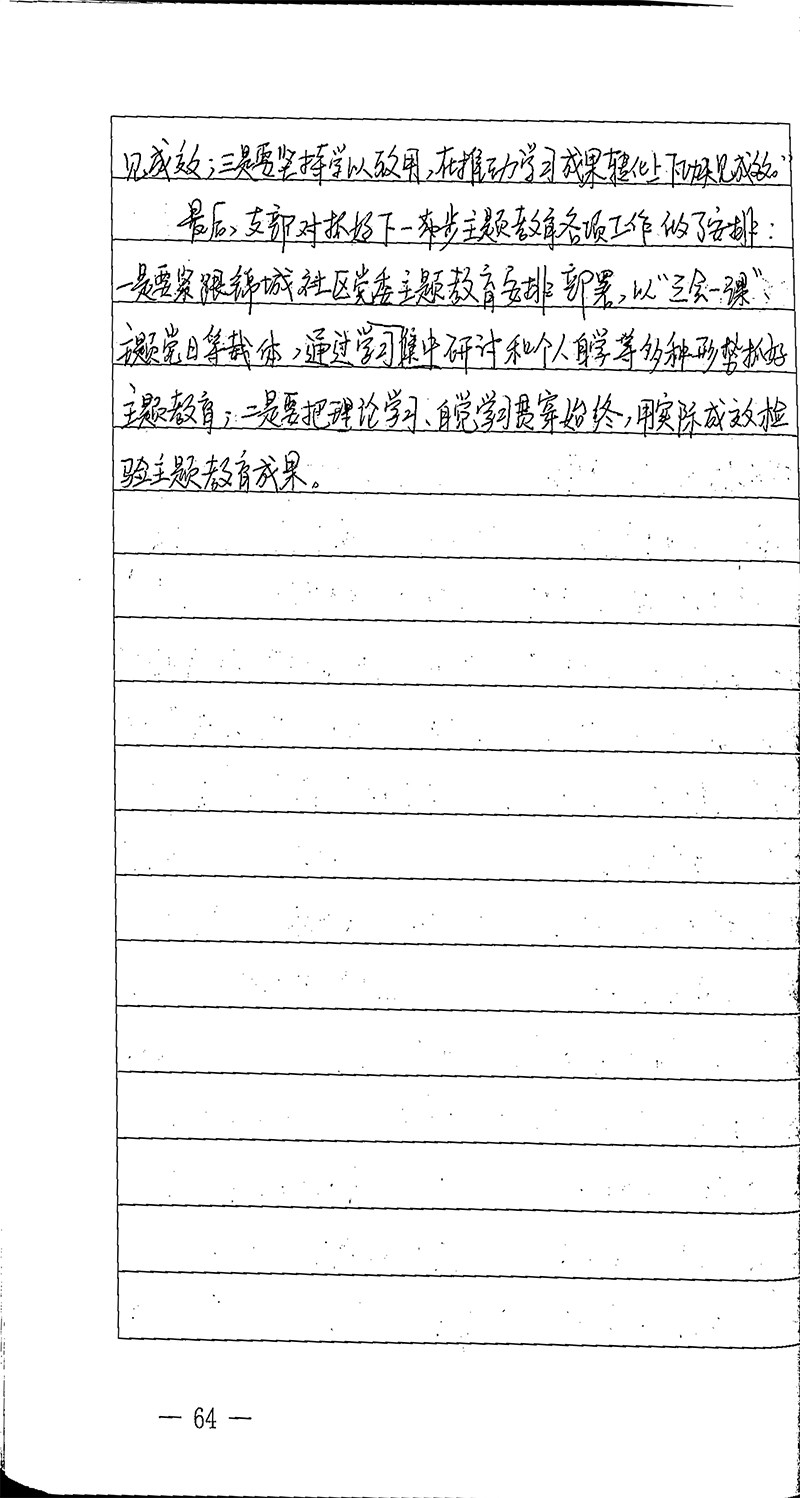 见成效；三是要坚持学以致用，在推动学习成果转化上下功夫见成效。”
最后，支部对抓好下一步主题教育各项工作做了安排：
一是要紧跟锦城社区党委主题教育安排部署，以“三会一课”、
主题党日等载体，通过学习集中研讨和个人自学等多种形势抓好
主题教育；二是要把理论学习、自觉学习贯穿始终，用实际成效检
验主题教育成果。
— 64 —